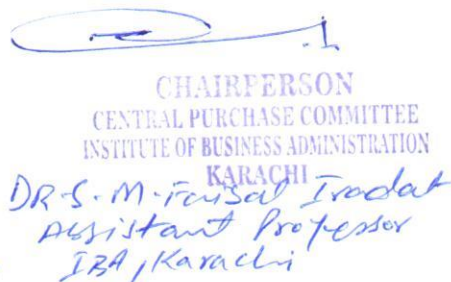 CHAIRPERSON
CENTRAL PURCHASE COMMITTEE
INSTITUTE OF BUSINESS ADMINISTRATION
KARACHI
DR-S-M-Faisal Iradat
Assistant Professor
IBA, Karachi